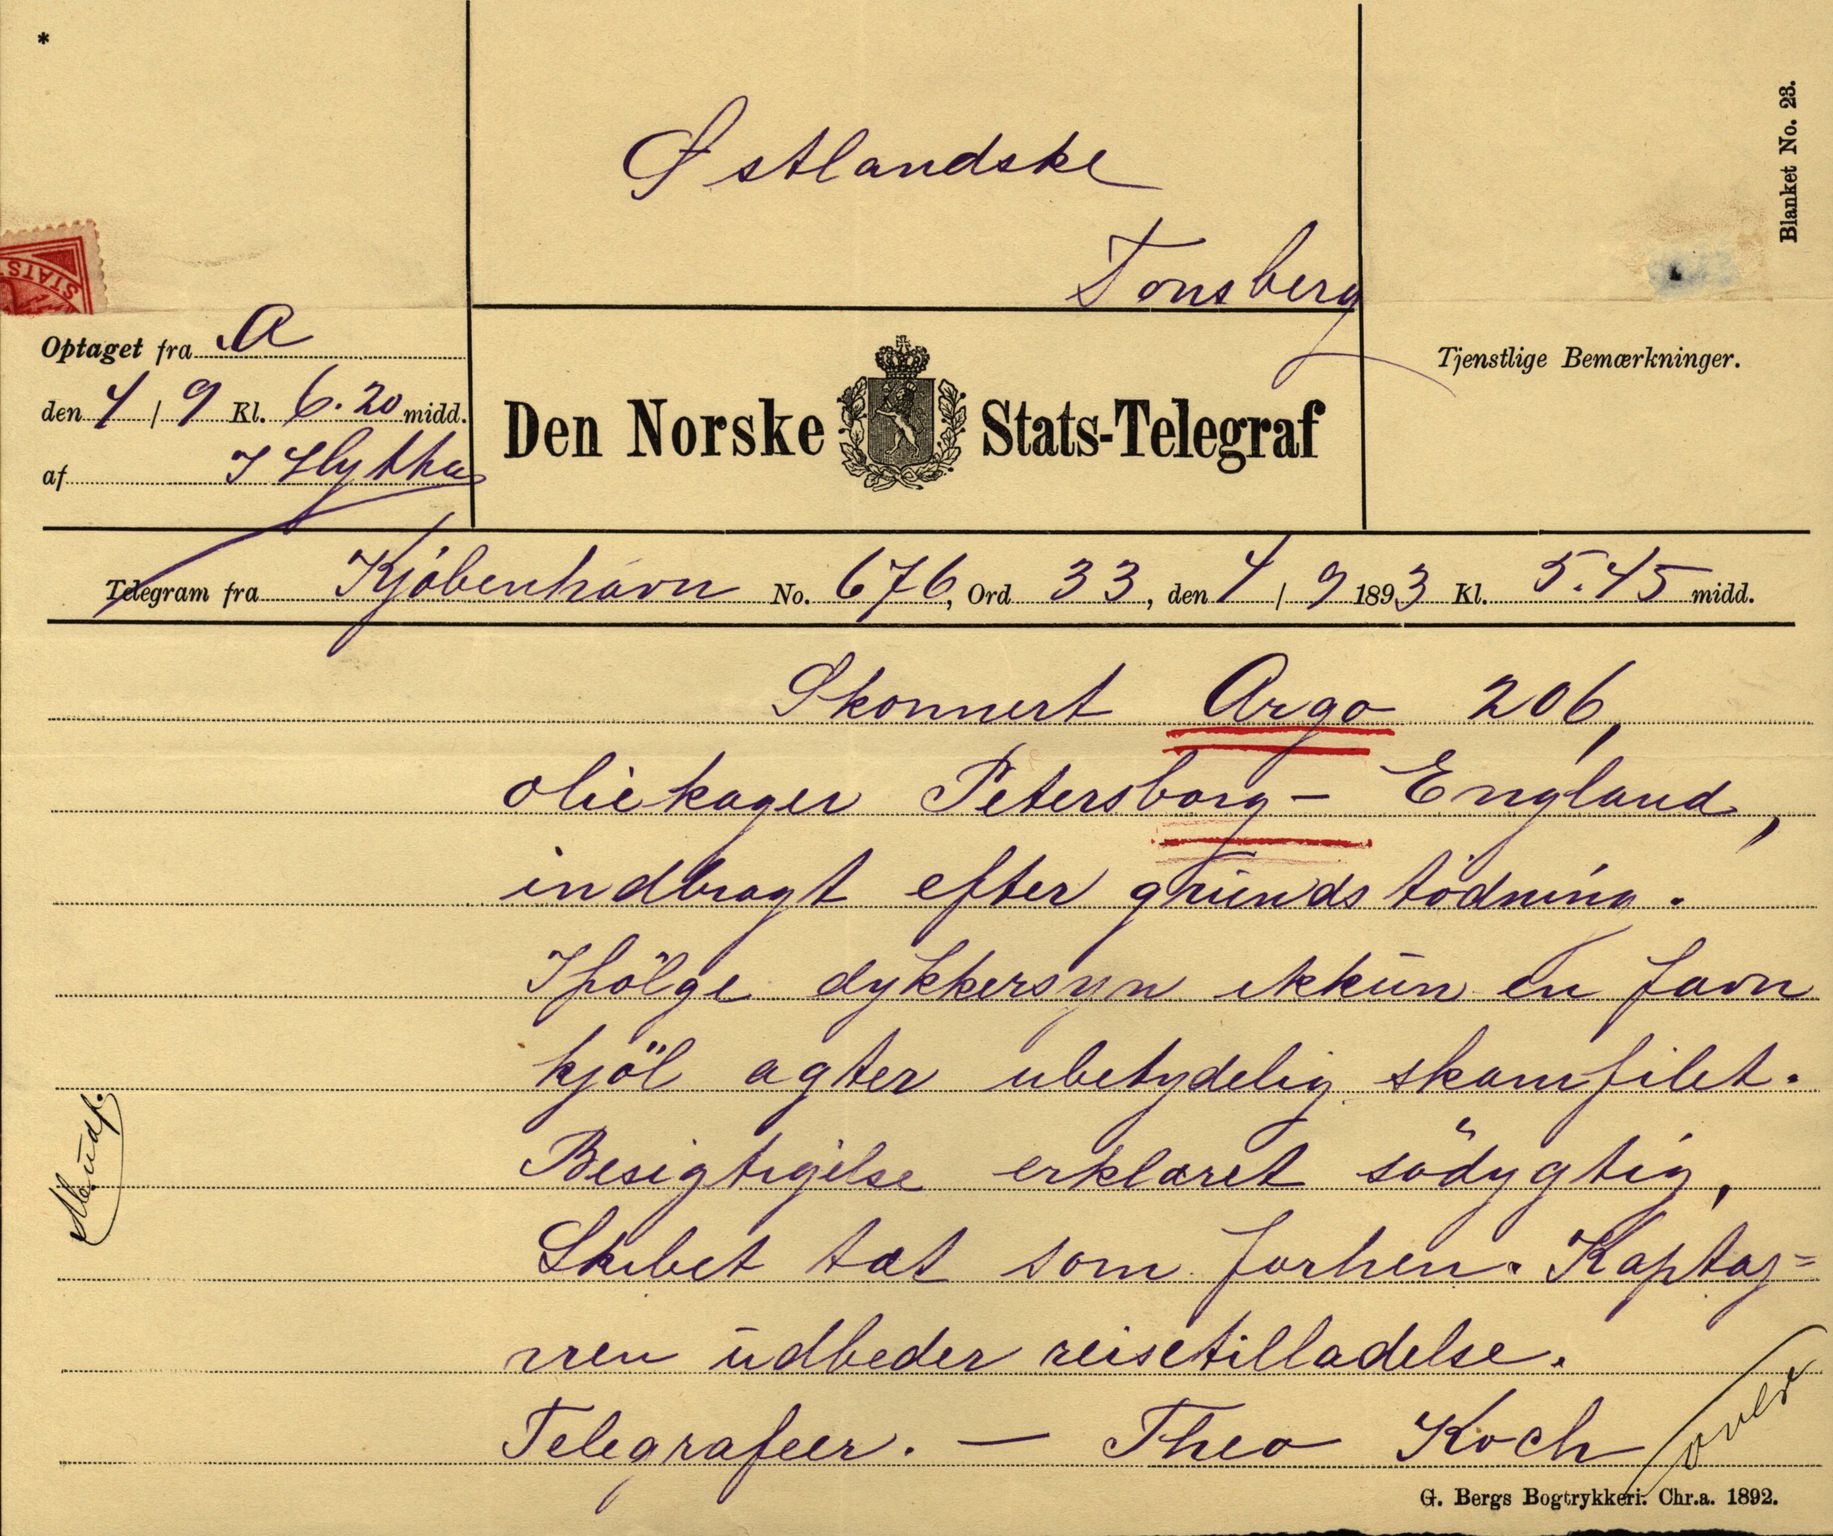 *
Blanket No. 23.
Østlandske
Tonsberg
STATST
Optaget fra A
den 4 / 9 Kl. 6.20 midd.
af
Den Norske Stats-Telegraf
Tjenstlige Bemærkninger.
Telegram fra Kjöbenhavn No. 676, Ord 33, den 4 / 9 1893 Kl. 5.45 midd.
Skonnert Argo 206,
oliekager Petersborg - England,
indbragt efter grundstödning.
Ifölge dykkersyn ikkun en favn
kjöl agter ubetydelig skamfilet.
Besigtigelse erklæret södygtig,
Skibet tæt som forhen. Kaptaj=
nen udbeder reisetilladelse.
Telegrafeer. — Theo Koch
G. Bergs Bogtrykkeri. Chr.a. 1892.